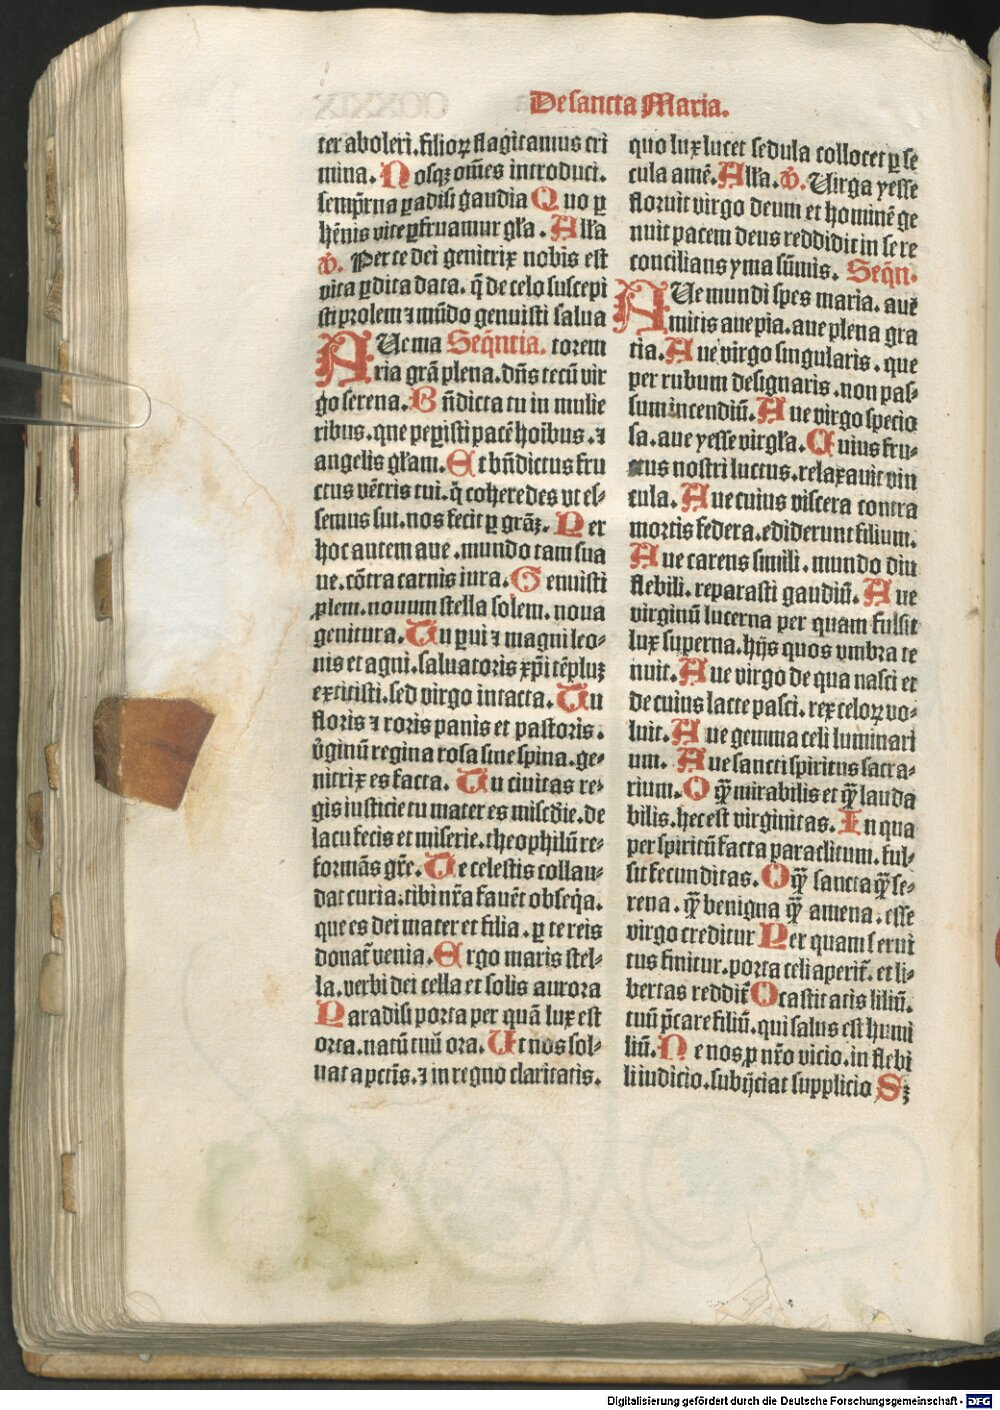 De sancta Maria.
ter aboleri. filioꝝ flagitamus cri
mina. Nosqꝫ om̄es introduci.
semp̄rna ꝑadisi gaudia Quo ꝑ
hēnis vite ꝑfruamur gl̄a. All'a
℣. Per te dei genitrix nobis est
vita ꝑdita data. q̄ de celo suscepi
sti prolem ⁊ mūdo genuisti salua
AUe ma Seq̄ntia. torem
ria grā plena. dn̄s tecū vir
go serena. Bn̄dicta tu in mulie
ribus. que peꝑisti pacē hoībus. ⁊
angelis gl̄am. Et bn̄dictus fru
ctus vētris tui. q̄ coheredes vt es⸗
semus sui. nos fecit ꝑ grāꝫ. Per
hoc autem aue. mundo tam sua
ue. cōtra carnis iura. Genuisti
ꝓlem. nouum stella solem. noua
genitura. Tu ꝑui ⁊ magni leo⸗
nis et agni. saluatoris xp̄i tēpluꝫ
extitisti. sed virgo intacta. Tu
floris ⁊ roris panis et pastoris.
v̄ginū regina rosa sine spina. ge⸗
nitrix es facta. Tu ciuitas re⸗
gis iusticie tu mater es misc̄die. de
lacu fecis et miserie. theophilū re⸗
formās gr̄e. Te celestis collau⸗
dat curia. tibi nr̄a fauēt obseq̄a.
que es dei mater et filia. ꝑ te reis
donat̄ venia. Ergo maris stel⸗
la. verbi dei cella et solis aurora
Paradisi porta per quā lux est
orta. natū tuū ora. Ut nos sol⸗
uat a pctīs. ⁊ in regno claritatis.
quo lux lucet sedula collocet ꝑ se
cula amē. All'a. ℣. Uirga yesse
floruit virgo deum et hominē ge
nuit pacem deus reddidit in se re
concilians yma sūmis. Seq̄n.
AUe mundi spes maria. aue
mitis aue pia. aue plena gra
tia. Aue virgo singularis. que
per rubum designaris. non pas⸗
sum incendiū. Aue virgo specio
sa. aue yesse virgl̄a. Cuius fru⸗
ctus nostri luctus. relaxauit vin
cula. Aue cuius viscera contra
mortis federa. ediderunt filium.
Aue carens simili. mundo diu
flebili. reparasti gaudiū. Aue
virginū lucerna per quam fulsit
lux superna. hijs quos vmbra te
nuit. Aue virgo de qua nasci et
de cuius lacte pasci. rex celoꝝ vo⸗
luit. Aue gemma celi luminari
um. Aue sancti spiritus sacra⸗
rium. O q̄ꝫ mirabilis et q̄ꝫ lauda
bilis. hec est virginitas. In qua
per spiritū facta paraclitum. ful⸗
sit fecunditas. O q̄ꝫ sancta q̄ꝫ se⸗
rena. q̄ꝫ benigna q̄ꝫ amena. esse
virgo creditur Per quam serui
tus finitur. porta celi aperit̄. et li⸗
bertas reddit̄ O castitatis liliū.
tuū p̄care filiū. qui salus est humi
liū. Ne nos ꝓ nr̄o vicio. in flebi
li iudicio. subijciat supplicio Sꝫ
Digitalisierung gefördert durch die Deutsche Forschungsgemeinschaft - DFG